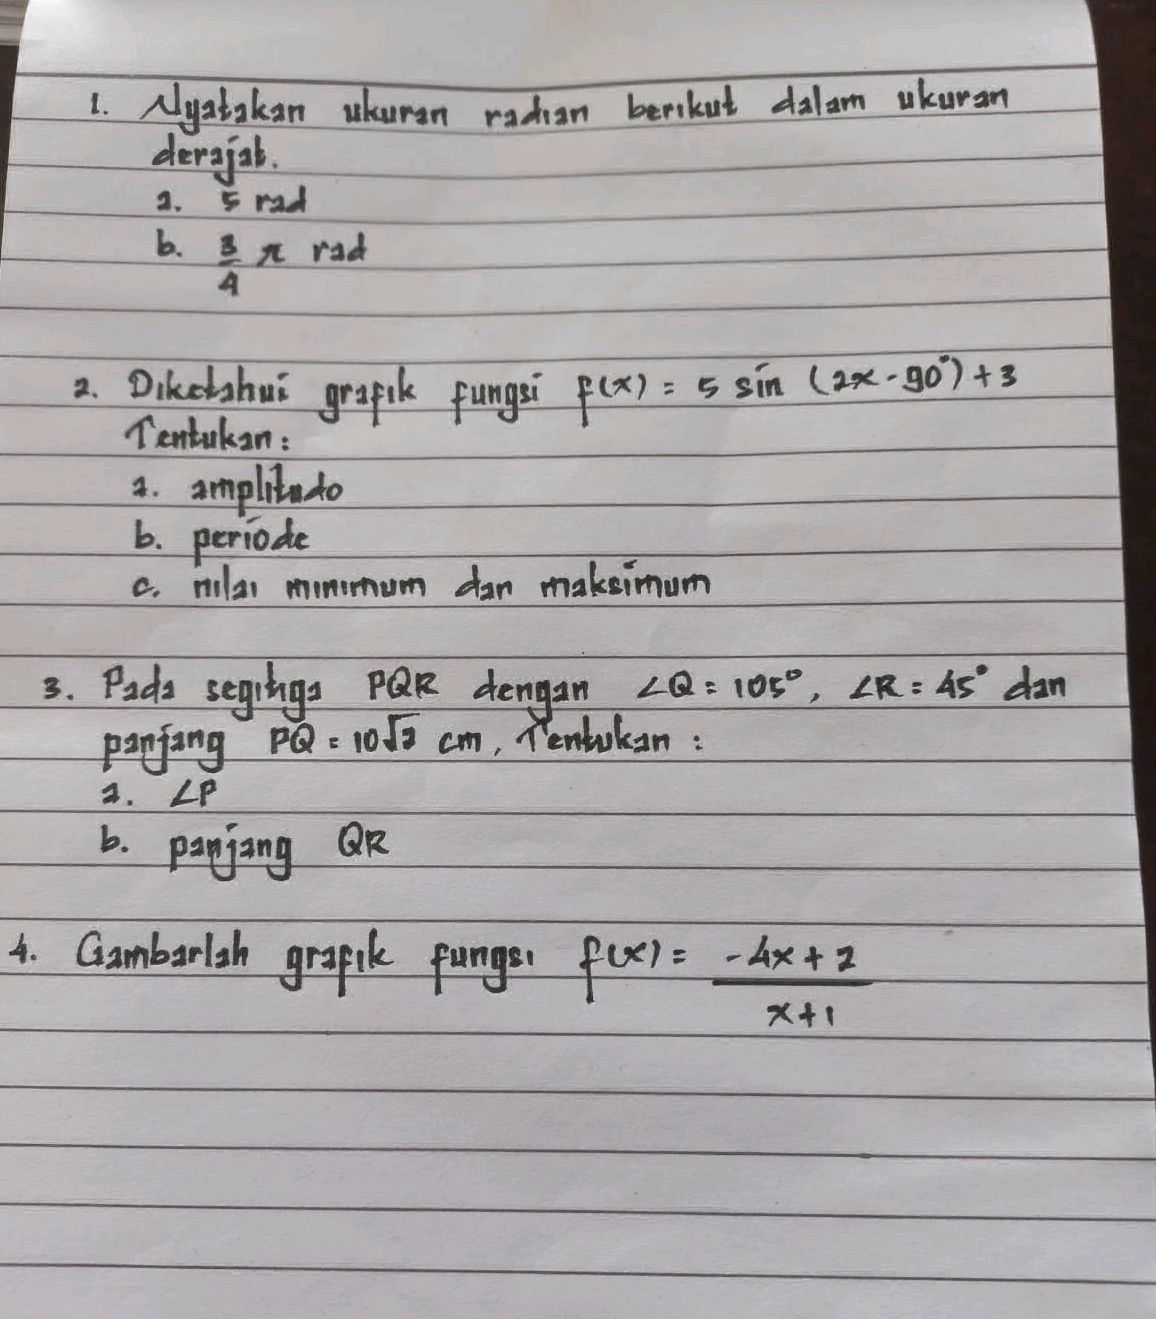 1. Nyatakan ukuran radian berikut dalam ukuran
derajat.
a. 5 rad
b. 3/4 π rad
2. Diketahui grafik fungsi f(x) = 5 sin (2x - 90°) + 3
Tentukan :
a. amplitudo
b. periode
c. nilai minimum dan maksimum
3. Pada segitiga PQR dengan ∠Q = 105°, ∠R = 45° dan
panjang PQ = 10√2 cm, Tentukan :
a. ∠P
b. panjang QR
4. Gambarlah grafik fungsi f(x) = -4x + 2
x + 1